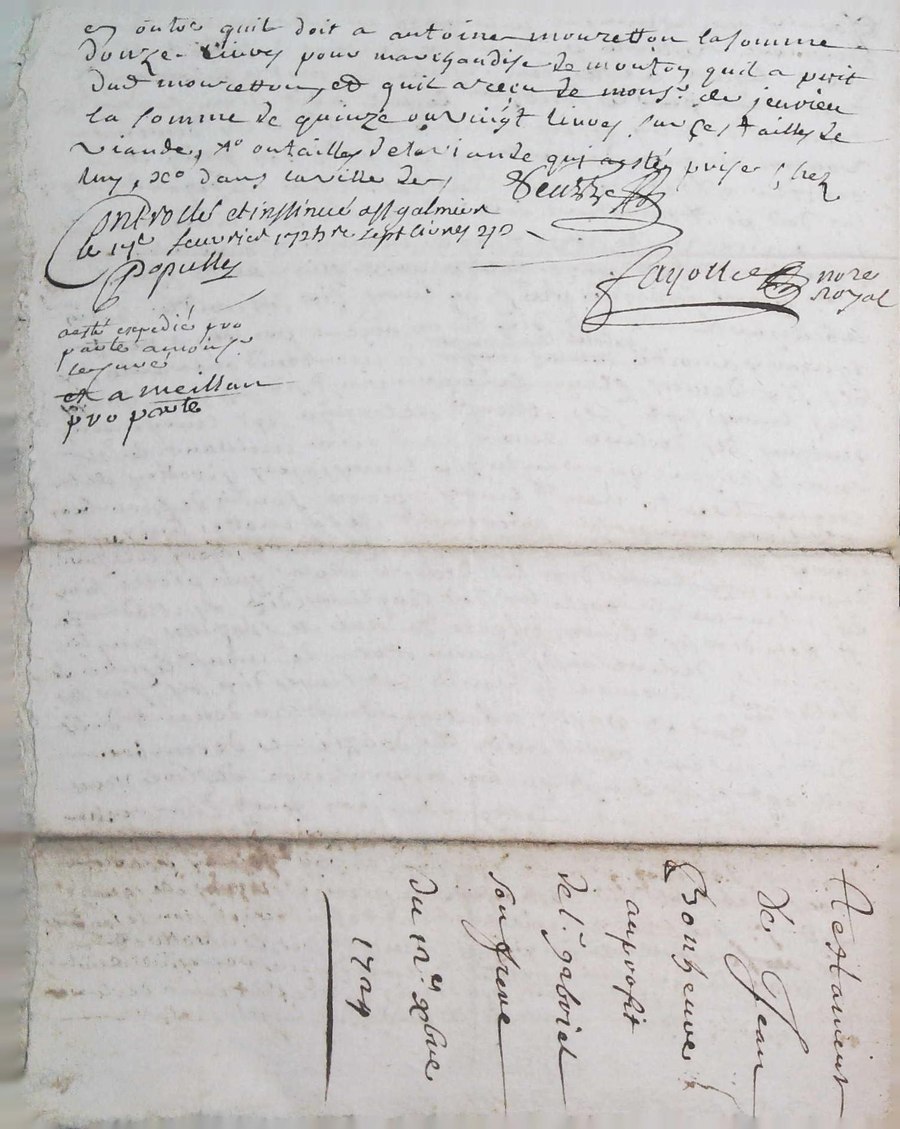 en outre quil doit a antoine mouretton la somme
douze livres pour marchandise de mouton quil a prit
dud mouretton, et quil a reçu de monsr de jeurieu
la somme de quinze ou vingt livres sur ces tailles de
viande, ou tailles de la viande qui a esté priser chez
luy, dans la ville de
Controllé et insinué a St galmier
le 17e feuvrier 172 sept livres
Populle
Fayolle nore
royal
a esté expedié pro
parte a mons
et a meillan
pro parte
Testament
de Jean
Bonheuvre
au profit
de l. gabriel
son frere
du xbre
1724